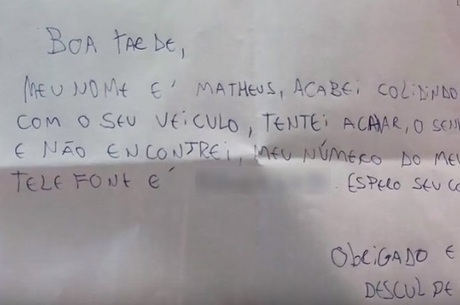 BOA TARDE,
MEU NOME E' MATHEUS, ACABEI COLIDINDO
COM O SEU VEICULO, TENTEI ACHAR, O SEN
E NÃO ENCONTREI, MEU NÚMERO DO MEU
TELEFONE E' ESPERO SEU CO
ObRIGADO E
DESCULPE